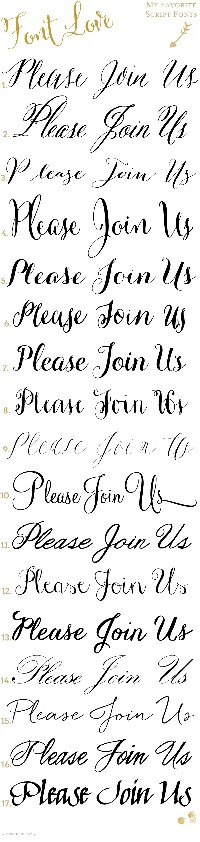 Font Love
My Favorite
Script Fonts
1. Please Join Us
2. Please Join Us
3. Please Join Us
4. Please Join Us
5. Please Join Us
6. Please Join Us
7. Please Join Us
8. Please Join Us
9. Please Join Us
10. Please Join Us
11. Please Join Us
12. Please Join Us
13. Please Join Us
14. Please Join Us
15. Please Join Us
16. Please Join Us
17. Please Join Us